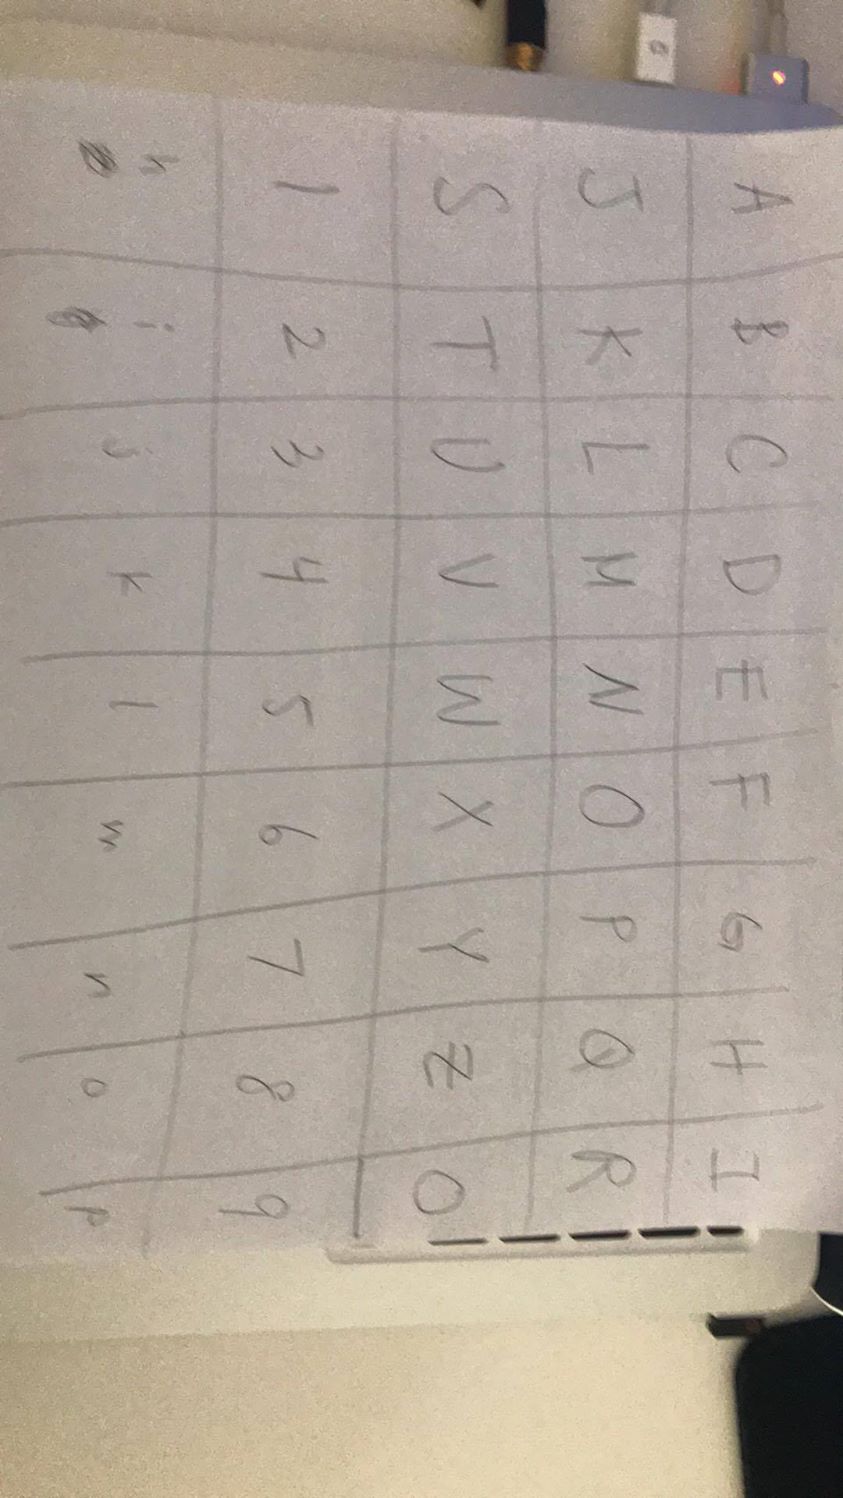 A B C D E F G H I
J K L M N O P Q R
S T U V W X Y Z 0
1 2 3 4 5 6 7 8 9
h i j k l m n o p